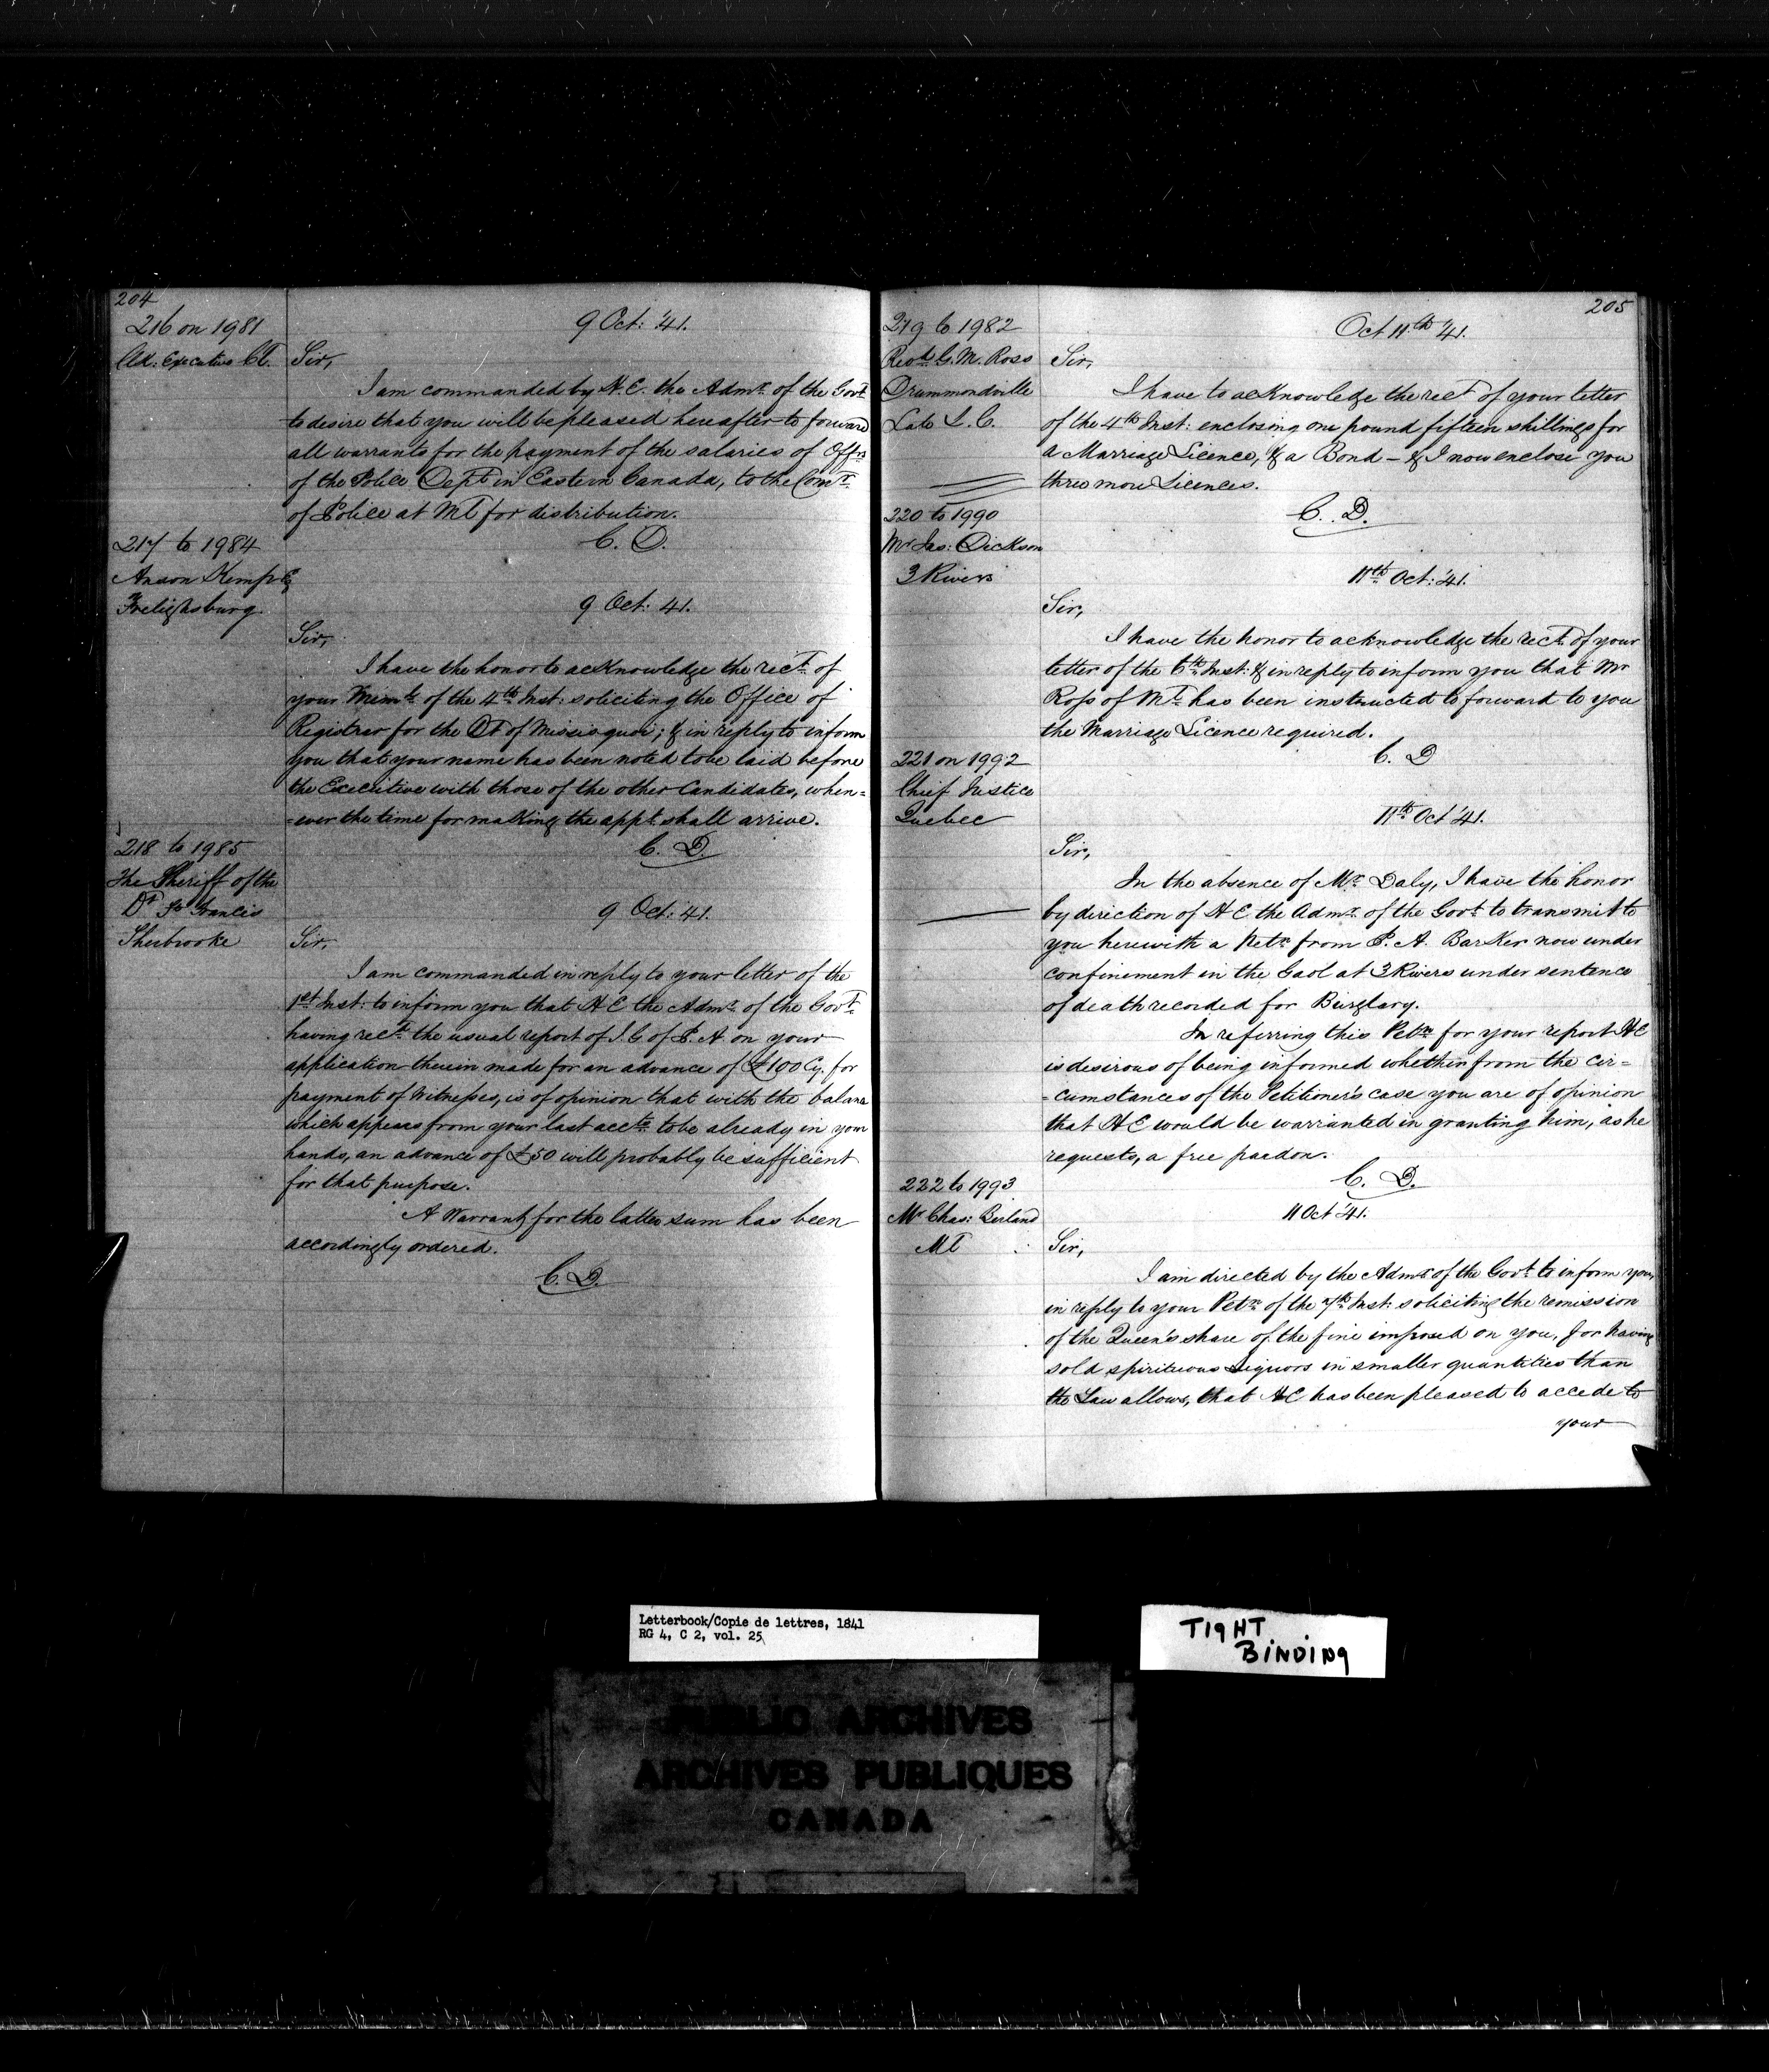 204
216 on 1981
Cl. Executive Cl.
9 Oct: '41.
Sir,
I am commanded by H.E. the Admr. of the Govt.
to desire that you will be pleased hereafter to forward
all warrants for the payment of the salaries of Offrs
of the Police Dept. in Eastern Canada, to the Comr.
of Police at Ml for distribution.
C. D.
217 to 1984
Anson Kemp Eq
Frelighsburg.
9 Oct: 41.
Sir,
I have the honor to acknowledge the rect. of
your Meml. of the 4th Inst: soliciting the Office of
Registrar for the Dt of Missisquoi; & in reply to inform
you that your name has been noted to be laid before
the Executive with those of the other Candidates, when=
=ever the time for making the appt. shall arrive.
C. D.
218 to 1985
The Sheriff of the
Dt St Francis
Sherbrooke
9 Oct: 41.
Sir,
I am commanded in reply to your letter of the
1st Inst: to inform you that H E the Admr. of the Govt.
having recd. the usual report of I. G. of P. A. on your
application therein made for an advance of £100 Cy. for
payment of Witnesses, is of opinion that with the balance
which appears from your last acct. to be already in your
hands, an advance of £50 will probably be sufficient
for that purpose.
A Warrant for the latter sum has been
accordingly ordered.
C. D.
205
219 to 1982
Revd. G. M. Ross
Drummondville
Late L. C.
Oct 11th '41.
Sir,
I have to acknowledge the rect of your letter
of the 4th Inst: enclosing one pound fifteen shillings for
a Marriage Licence, & a Bond – & I now enclose you
three more Licences.
C. D.
220 to 1990
Mr Jas: Dickson
3 Rivers
11th Oct: '41.
Sir,
I have the honor to acknowledge the rect. of your
letter of the 6th Inst: & in reply to inform you that Mr
Ross of Ml. has been instructed to forward to you
the Marriage Licence required.
C. D
221 on 1992
Chief Justice
Quebec
11th Oct '41.
Sir,
In the absence of Mr. Daly, I have the honor
by direction of H E the Admr. of the Govt. to transmit to
you herewith a Petn. from P. A. Barker now under
confinement in the Gaol at 3 Rivers under sentence
of death recorded for Burglary.
In referring this Petn. for your report H E
is desirous of being informed whether from the cir=
=cumstances of the Petitioner's case you are of opinion
that H E would be warranted in granting him, as he
requests, a free pardon.
C. D.
222 to 1993
Mr Chas: Berland
Ml
11 Oct '41.
Sir,
I am directed by the Admr. of the Govt. to inform you,
in reply to your Petn. of the 7th Inst: soliciting the remission
of the Queen's share of the fine imposed on you, for having
sold spirituous Liquors in smaller quantities than
the Law allows, that H E has been pleased to accede to
your
Letterbook/Copie de lettres, 1841
RG 4, C 2, vol. 25
TIGHT
BINDING
PUBLIC ARCHIVES
ARCHIVES PUBLIQUES
CANADA